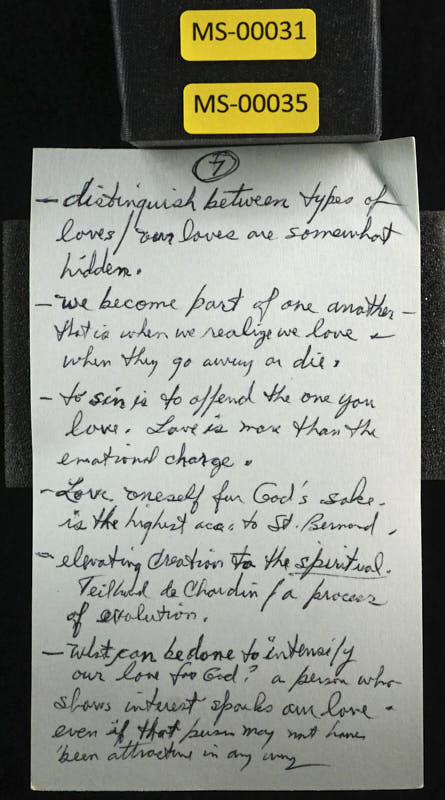 MS-00031
MS-00035
7
- distinguish between types of
loves / our loves are somewhat
hidden.
- we become part of one another -
that is when we realize we love -
when they go away or die.
- to sin is to offend the one you
love. Love is more than the
emotional charge.
- Love oneself for God's sake -
is the highest acc. to St. Bernard.
- elevating creation to the spiritual.
Teilhard de Chardin / a process
of evolution.
- What can be done to "intensify
our love for God? a person who
shows interest sparks our love -
even if that person may not have
been attractive in any way